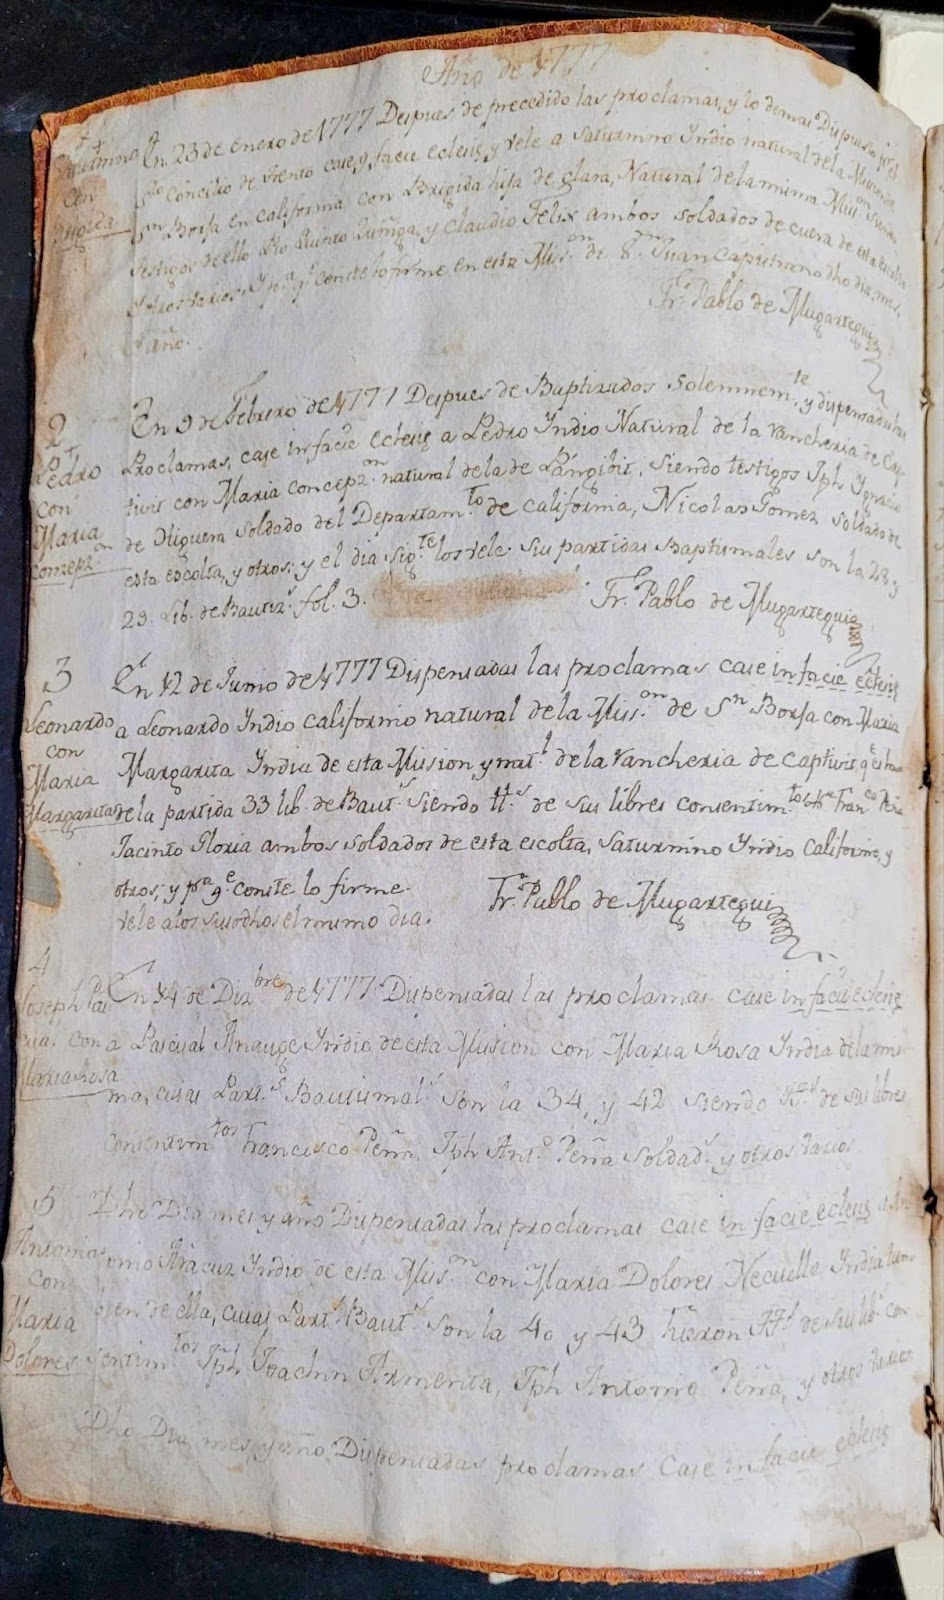 Año de 1777
1
Saturnino
con
Brigida
En 23 de Enero de 1777 Despues de precedido las proclamas, y lo demas Dispuesto por el
sto Concilio de Trento case, y facie eclesie, y vele a Saturnino Yndio natural de la Mision de
Sn Borja en California con Brigida hija de Clara, Natural de la misma Mision
Testigos de ello Pio Quinto Zuñiga, y Claudio Felix ambos soldados de cuera de esta escolta
y otros varios. Y pa qe conste lo firme en esta Mison de Sn Juan Capistrano dho dia, mes,
y año.
Fr. Pablo de Mugartegui
2
Pedro
con
Maria
Concepzon
En 9 de Febrero de 1777 Despues de Baptizados Solemnemte, y dispensadas las
Proclamas, case in facie eclesie a Pedro Yndio Natural de la rancheria de Cap-
tivit con Maria Concepzon natural de la de Pángibit, siendo testigos Jph Ygnacio
de Higuera Soldado del Departamto de California, Nicolas Gomez soldado de
esta escolta, y otros: y el dia sigte los vele. Sus partidas Baptismales son la 28 y
29. Lib. de Bautizs fol. 3.
Fr. Pablo de Mugartegui
3
Leonardo
con
Maria
Margarita
En 12 de Junio de 1777 Dispensadas las proclamas case in facie eclesie
a Leonardo Yndio californio natural de la Mison de Sn Borja con Maria
Margarita Yndia de esta Mission y natl de la rancheria de Captivit, qe es
de la partida 33 lib. de Bauts siendo tts de sus libres consentimtos Franco Peña
Jacinto Gloria ambos soldados de esta escolta, Saturnino Yndio Californio, y
otros; y pa qe conste lo firme.
vele a los susodhos el mismo dia.
Fr. Pablo de Mugartegui
4
Joseph Pas
cual con
Maria Rosa
En 14 de Dizbre de 1777 Dispensadas las proclamas case in facie eclesie
a Pascual Anauge Yndio de esta Mision con Maria Rosa Yndia de la mis-
ma, cuias Parts Bautismals son la 34, y 42 siendo tts de sus libres
consentimtos Francisco Peña, Jph Anto Peña Soldads y otros varios
5
Antonio
con
Maria
Dolores
Dho Dia mes y año Dispensadas las proclamas case in facie eclesie a An
tonio Aracuz Yndio de esta Mison con Maria Dolores Necuello Yndia tam
bien de ella, cuias Parts Bauts son la 40 y 43 fueron tts de su libe con
sentimtos Jph Joachin Armenta, Jph Antonio Peña, y otros varios
Dho Dia mes, y año Dispensadas proclamas case in facie eclesie